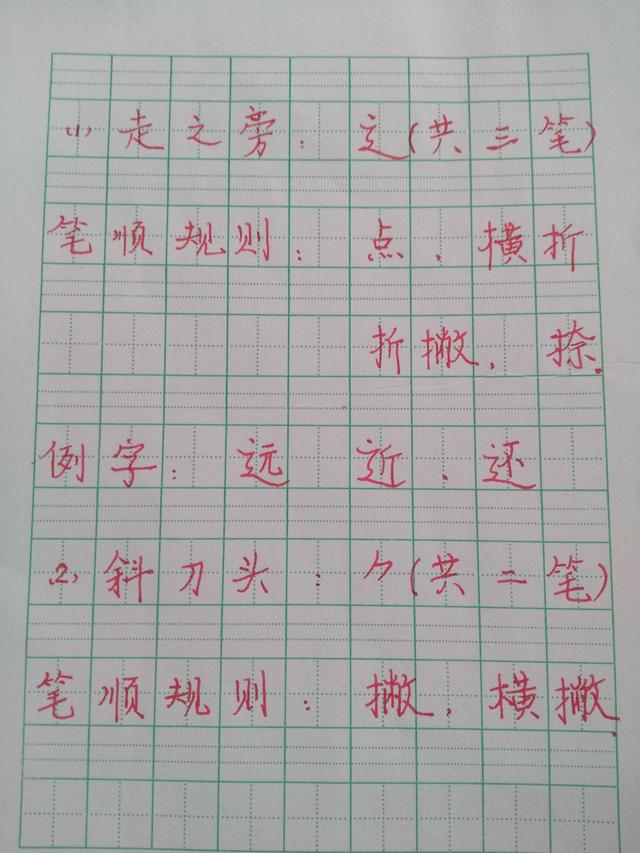 (1) 走之旁：辶(共三笔)
笔顺规则：点，横折
折撇，捺.
例字：远 近、还
(2) 斜刀头：⺈(共二笔)
笔顺规则：撇，横撇.